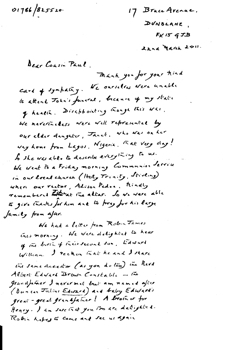 01786/825520
17 Bruce Avenue,
DUNBLANE
FK15 9JB
22nd March 2011.
Dear Cousin Paul,
Thank you for your kind
card of sympathy. We ourselves were unable
to attend funeral, because of my state
of health. Disappointing though this was,
we nevertheless were well represented by
our elder daughter, Janet, who was on her
way home from Lagos, Nigeria, that very day!
So she was able to describe everything to us.
We went to a Friday morning Communion Service
in our local church (Holy Trinity, Stirling)
when our rector, Alison Peden, kindly
remembered at the altar. So we were able
to give thanks for him and to pray for his large
family from afar.
We had a letter from Robin James
this morning. We were delighted to hear
of the birth of second son, Edward
William. I reckon that he and I share
the same ancestor (as you do too) in the
Albert Edward Brown Constable - the
grandfather I never met but am named after
(Duncan James Edward) and baby Edward's
great-great grandfather! A brother for
Henry. I am sure that you are delighted.
Robin hopes to come and see us again